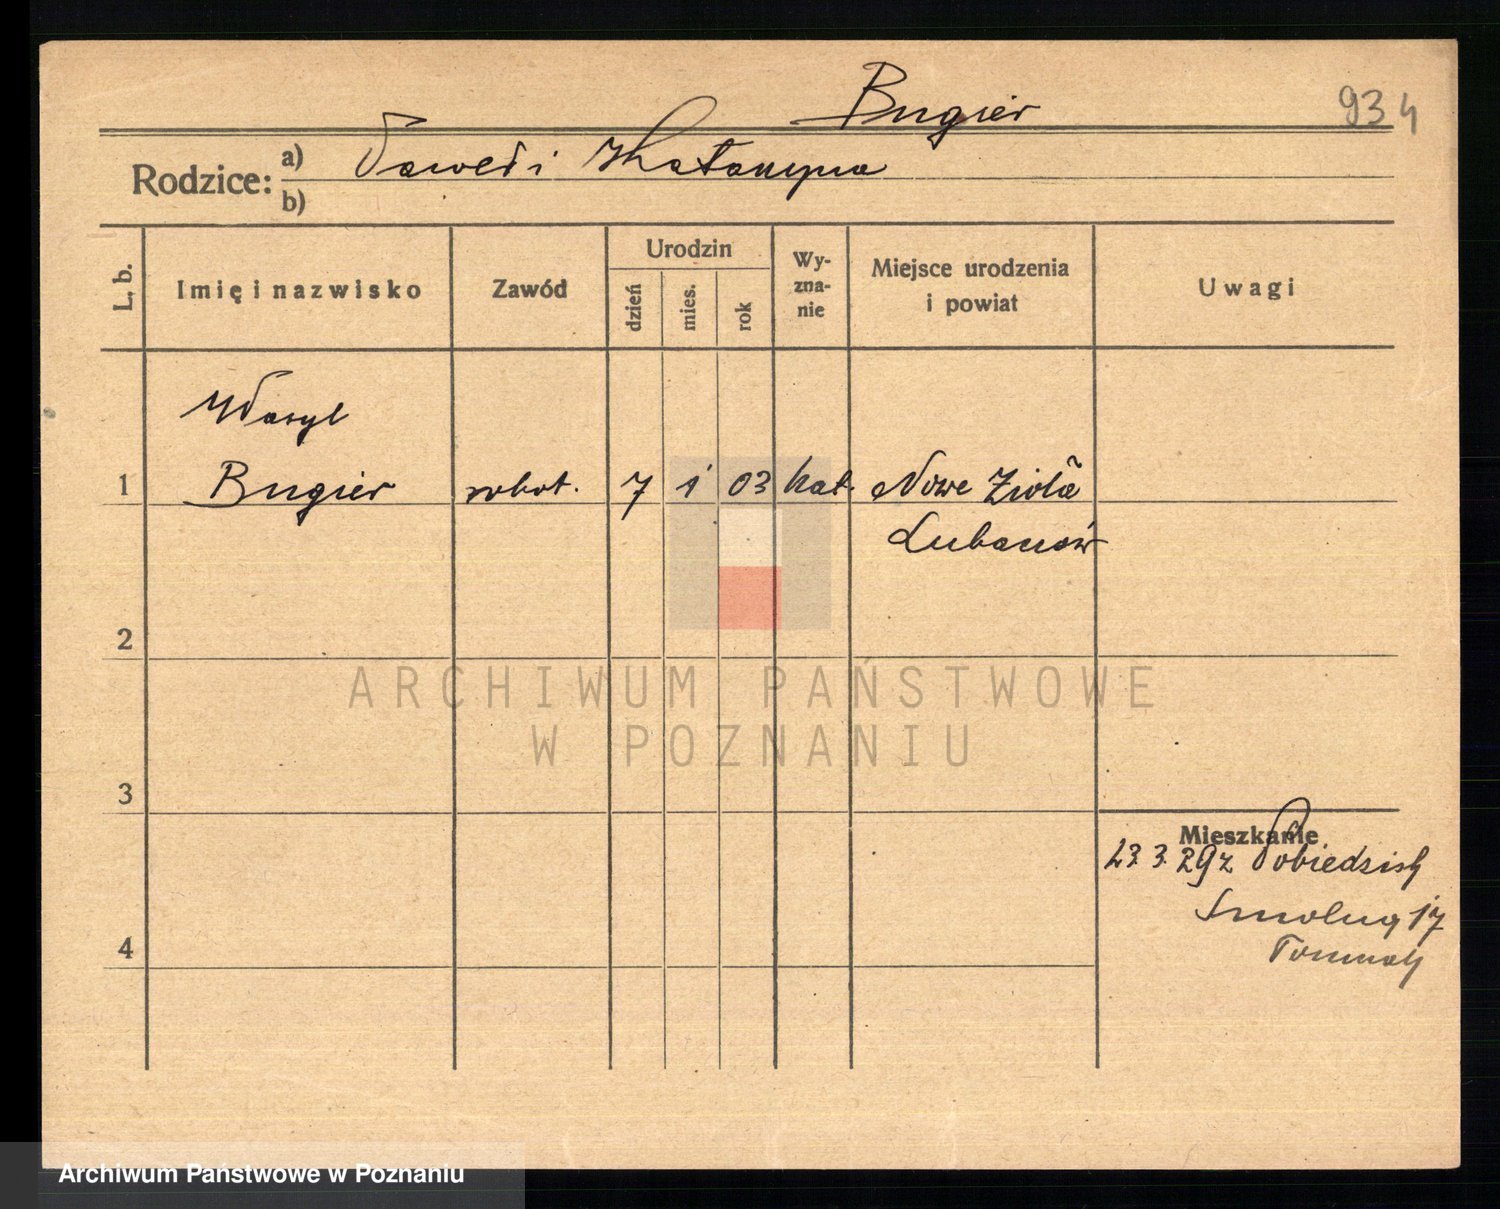 Bugier
934
Rodzice: a) Paweł i Katarzyna
b)
L. b. Imię i nazwisko Zawód Urodzin dzień mies. rok Wy-zna-nie Miejsce urodzenia i powiat Uwagi
Wasyl
1 Bugier robot. 7 1 03 kat. Nowe
2
ARCHIWUM PAŃSTWOWE
W POZNANIU
3
Mieszkanie
23.3.29 z Pobiedzisk
17
4
Archiwum Państwowe w Poznaniu